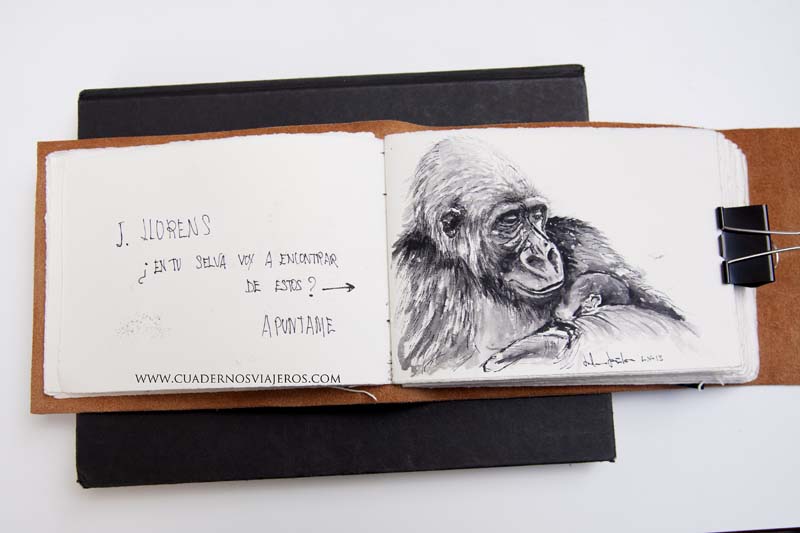 J. LLORENS
¿EN TU SELVA VOY A ENCONTRAR
DE ESTOS? →
APUNTAME
WWW.CUADERNOSVIAJEROS.COM